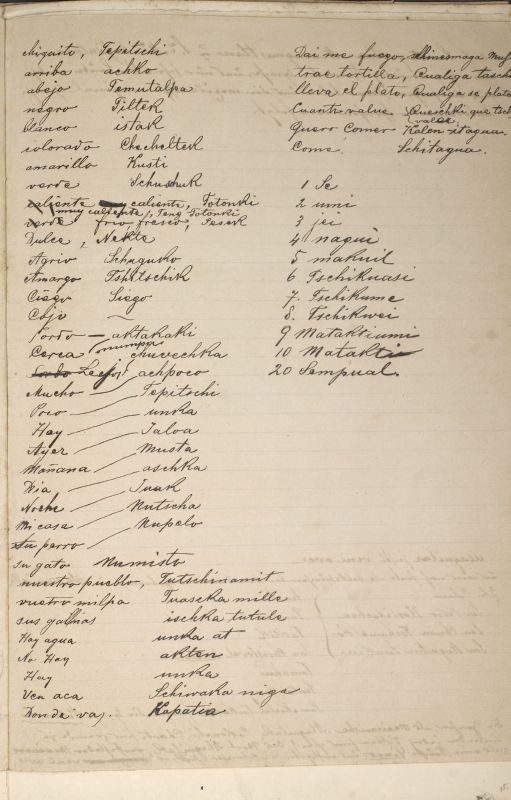 chiquito, Tepitschi
arriba achko
abajo Temutalpa
negro Tiltek
blanco istak
colorado Checheltek
amarillo Kusti
verde Schuschuk
caliente caliente, Totonki
muy caliente, Teng Totonki
verde frio, fresco, Sesek
Dulce, Nekte
Agrio Schaguko
Amargo Tshitschik
Ciego Siego
Cojo ~
Sordo — aktakaki
Cerca chuvechka
Lejos achpoco
Mucho mumpa
Poco Tepitschi
Hay unka
Ayer Jaloa
Mañana Musta
Dia aschka
Noche Juak
Mi casa Nutscha
Su perro Nupelo
su gato Numisto
nuestro pueblo, Tutschinamit
vuetro milpa Tuaszka mille
sus gallinas ischka tutule
Hay agua unka at
No Hay akten
Hay unka
Ven aca Schiwaka niga
Donde vas. Kapatia
Dai me fuego,
trae tortilla, Cualiga
lleva el plato, Cualiga se plato
Cuanto value Queschki que
valae.
Quero Comer Kalen
Come. Schitagua.
1 Se
2 umi
3 jei
4 nagui
5 makuil
6 Tschikuasi
7. Tschikume
8. Tschikwei
9 Mataktiumi
10 Matakti
20 Sempual.